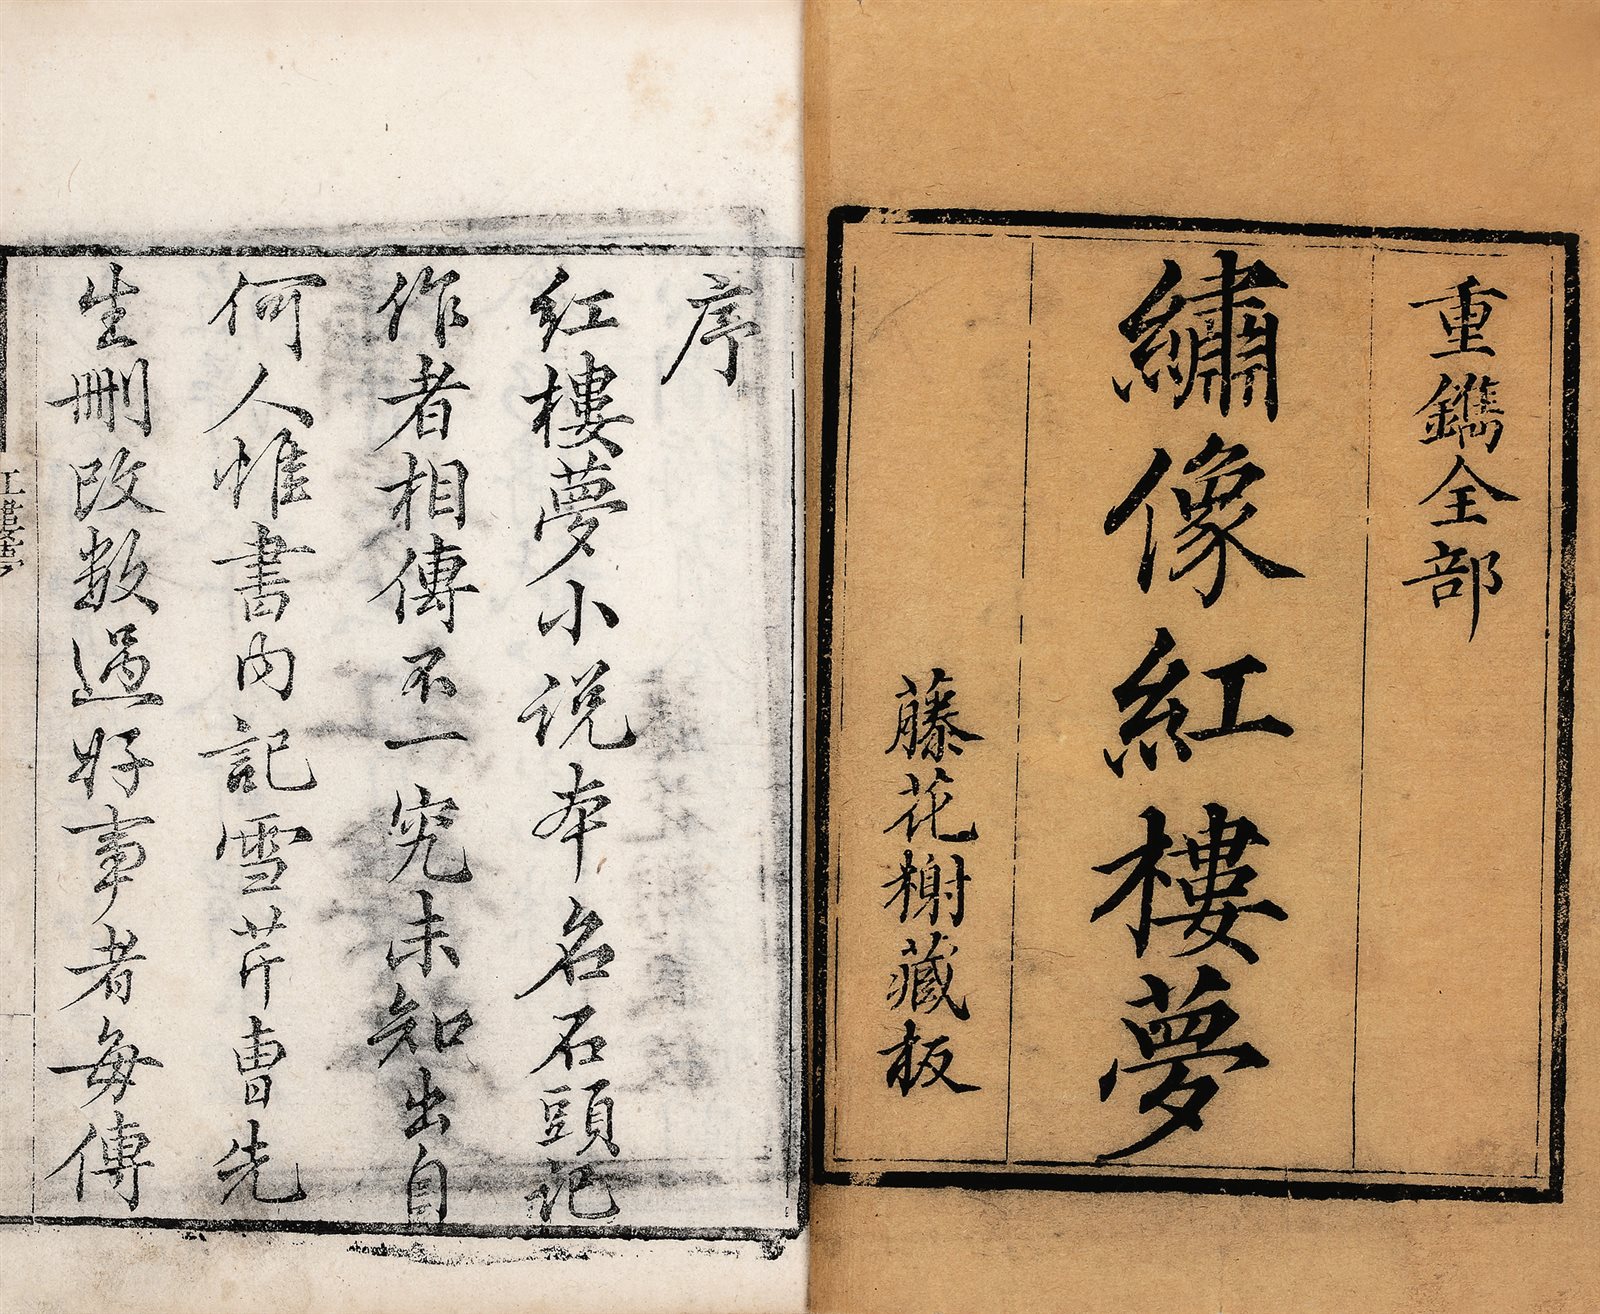 重鐫全部
繡像紅樓夢
藤花榭藏板
序
红樓夢小说本名石頭记
作者相傳不一究未知出自
何人惟書内記雪芹曹先
生刪改数過好事者每傳